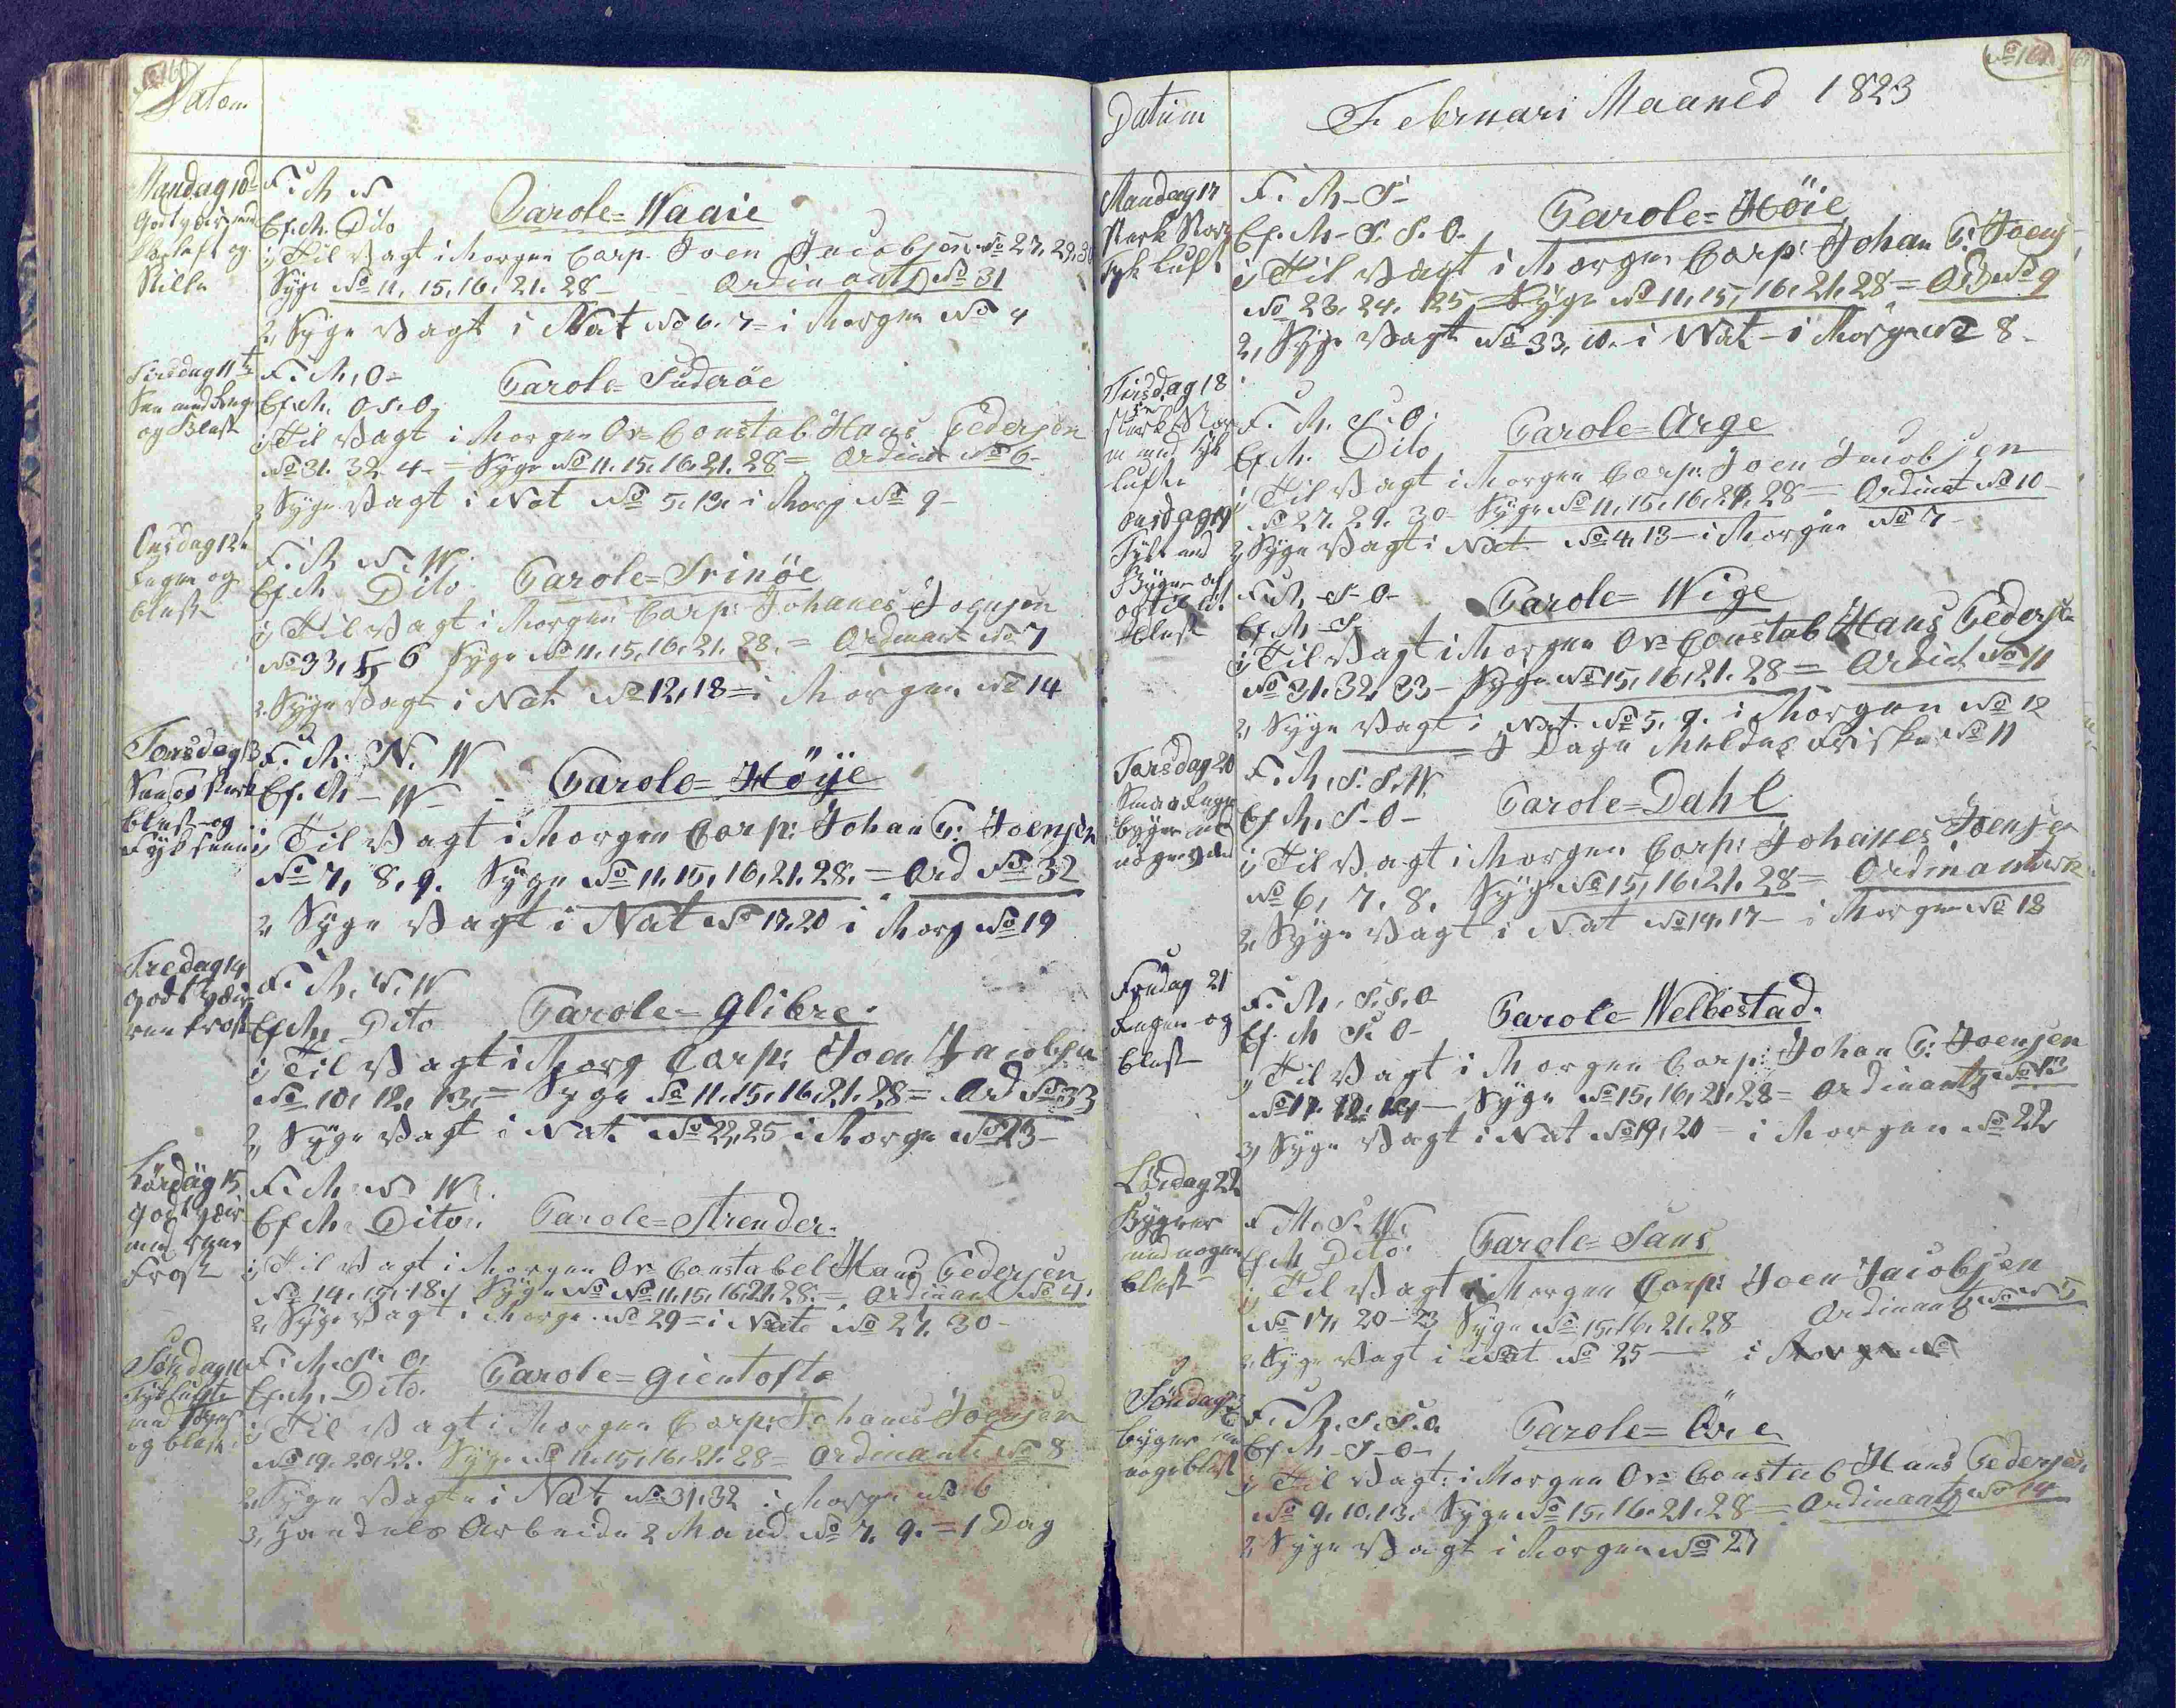 Datum
Mandag 10de
Godt veir med
klar luft og
Stille
F. M. N
Ef. M. Dito
Parole = Waaie
1, Til Vagt i Morgen Corp. Joen Jacobsen No 27, 29, 30
Syge No 11, 15, 16, 21. 28 - Ordinants No 31
2, Syge Vagt i Nat No 6. 7 = i Morgen No 4
Tirsdag 11te
og Blæst
F. M. O =
Ef. M. O S. O.
Parole = Suderöe
1, Til Vagt i Morgen Ov= Constab Hans Pedersen
No 31. 32. 4 - = Syge No 11. 15. 16. 21. 28 = Ordinat No 6 -
2 Syge Vagt i Nat No 5. 13. i Morg No 9 -
Onsdag 12te
Regen og
blæst
F. M. N. W.
Ef. M. Dito
Parole = Svinöe
1, Til Vagt i Morgen Corp: Johanes Joensen
No 33, 5, 6 Syge No 11. 15. 16. 21. 28. = Ordinant No 7
2. Syge Vagt i Nat No 12, 18 = i Morgen No 14
Torsdag 13
Snee og stærk
blæst og
Fyksnee
F. M. N. W
Ef. M - W -
Parole = Höÿe
1, Til Vagt i Morgen Corp: Johan P: Joensen
No 7, 8, 9. Syge No 11. 15, 16, 21. 28. = Ord No 32
2, Syge Vagt i Nat No 17. 20 i Morg No 19
Fredag 14
godt veir
reen frost
F. M. N. W
Ef. M. Dito
Parole = Glibre.
1, Til Vagt i Morg Corp: Joen Jacobsen
No 10, 12, 13, = Syge No 11. 15. 16. 21. 28 = Ord No 33
2, Syge Vagt i Nat No 22, 25 i Morge No 23 -
Lördag 15
godt veir
med reen
Frost
F. M. N W.
Ef. M. Dito.
Parole = Strender.
1, Til Vagt i Morgen Ov= Constabel Hans Pedersen
No 14. 15. 18. Syge No No 11. 15. 16. 21. 28. = Ordinant No 4.
2, Syge Vagt i Morge. No 29 = i Nate No 27. 30 -
Söndag 16
Tyk luft
med Regn
og blæst
F. M. S. O,
Ef. M. Dito.
Parole = Gientofte
1, Til Vagt i Morgen Corp: Johanes Joensen
No 19. 20, 22. Syge No 11. 15, 16. 21. 28 = Ordinants No 8
2, Syge Vagt i Nat No 31, 32 i Morge No 6
3, Handels Arbeide 2 Mand No 7. 9. = 1 Dag
Datum
Februari Maaned 1823
Mandag 17
Stærk Storm
Tyk Luft
F. M - S -
Ef. M - S. S. O -
Parole = Höie
1, Til Vagt i Morgen Corp: Johan P: Joens
No 23. 24. 25, Syge No 11, 15, 16, 21. 28 = Ord No 9
2, Syge Vagt No 33, 10. - i Nat - i Morge No 8 -
Tirsdag 18
Stærk Stor
m med tyk
Luft
F. M. S. O.
Ef. M. Dito
Parole = Arge
1, Til Vagt i Morgen Corp: Joen Jacobsen
No 27. 29. 30 - Syge No 11, 15, 16, 21. 28 = Ordinat No 10 -
2, Syge Vagt i Nat No 4. 13 - i Morgen No 7 -
Onsdag 19
Tykt med
Byger af
og til lit
blæst
F. M. S - O -
Ef. M - S.
Parole = Wige
1, Til Vagt i Morgen Ov= Constab Hans Pederse
No 31. 32, 33 - Syge No 15, 16, 21. 28 = Ordint No 11
2, Syge Vagt i Nat. No 5. 9. i Morgen No 12
I Dage Meldes Friske No 11
Torsdag 20
F. M. S. S. W.
Ef. M. S - O -
Parole = Dahl
1, Til Vagt i Morgen Corp: Johanes Joensen
No 6, 7. 8. Syge No 15, 16, 21. 28 = Ordinant
2, Syge Vagt i Nat No 14. 17 - i Morgen No 18
Fredag 21
Regen og
blæst
F. M. S. S. O
Ef. M S. O -
Parole = Welbestad.
1, Til Vagt i Morgen Corp: Johan P: Joensen
Syge No 15, 16, 21, 28 = Ordinants No 13
3, Syge Vagt i Nat No 19, 20 = i Morgen No 22
Lördag 22
Bygver
med nogen
blæst
F M. S. W.
Ef. M Dito.
Parole = Sans
1, Til Vagt i Morgen Corp: Joen Jacobsen
No 17, 20 - 23 Syge No 15, 16, 21. 28 Ordinants
2, Syge Vagt i Nat No 25 - i Morgen No
Söndag 23
byger med
noge blæst
F. M. S. S. O.
Ef. M - S - O -
Parole = Öre
1, Til Vagt i Morgen Ov= Constab Hans Pedersen
No 9. 10. 13. Syge No 15. 16. 21. 28 = Ordinants No 14
2, Syge Vagt i Morgen No 27